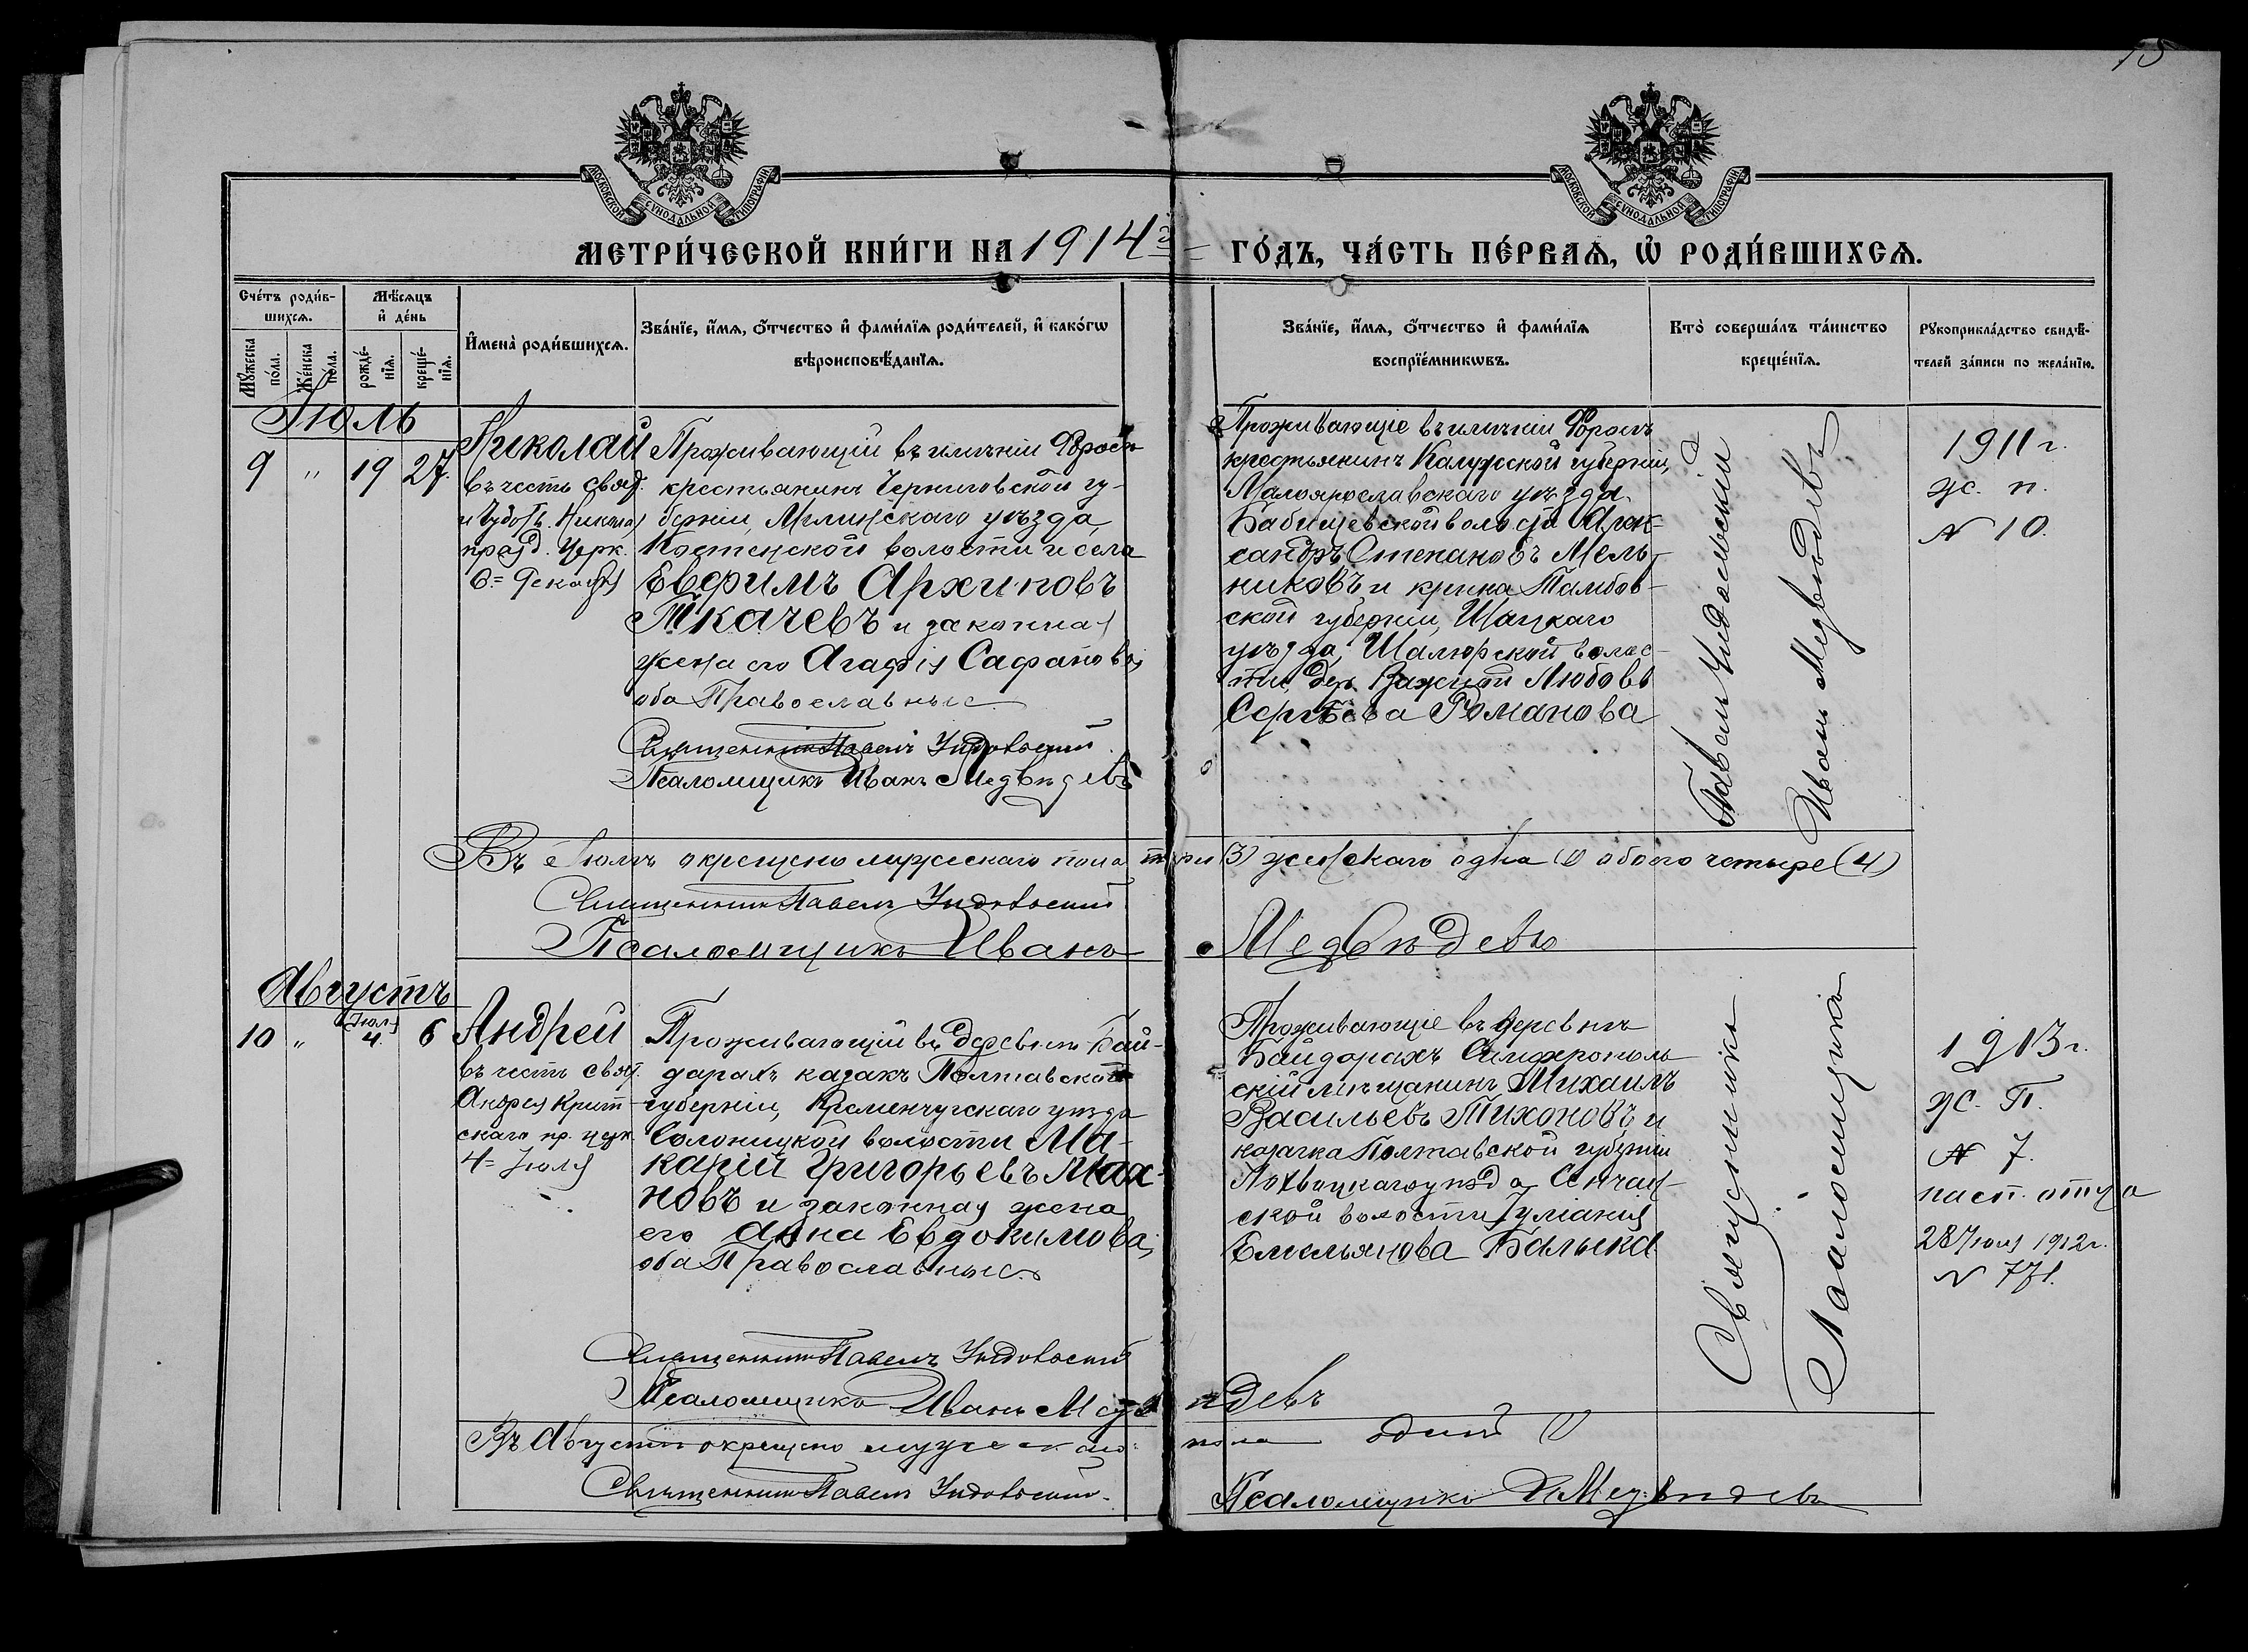 15
МОСКОВСКОЙ СѴНОДАЛЬНОЙ ТИПОГРАФІИ
МОСКОВСКОЙ СѴНОДАЛЬНОЙ ТИПОГРАФІИ
МЕТРИ́ЧЕСКОЙ КНИ́ГИ НА 1914 г. ГО́ДЪ, ЧА́СТЬ ПЕ́РВАѦ, Ѽ РОДИ́ВШИХСѦ.
Сче́тъ роди́в-
шихсѧ.
Мѣ́сѧцъ
и҆ де́нь
Мꙋ́жеска
по́ла.
Же́нска
по́ла.
рожде́-
нїѧ.
креще́-
нїѧ.
И҆мена̀ роди́вшихсѧ.
Зва́нїе, и҆́мѧ, ѻ҆́тчество и҆ фами́лїѧ роди́телей, и҆ како́гѡ
вѣроисповѣ́данїѧ.
Зва́нїе, и҆́мѧ, ѻ҆́тчество и҆ фами́лїѧ
воспрїе́мникѡвъ.
Кто̀ соверша́лъ та́инство
креще́нїѧ.
Рꙋкоприкла́дство свидѣ́-
телей за́писи по жела́нїю.
Іюль
9 " 19 27.
Николай
въ честь свят.
и Чудотв. Николая
празд. Церк.
6= Декабря
Проживающій въ имѣніи Форосъ
крестьянинъ Черниговской гу-
берніи, Мглинскаго уѣзда,
Костенской волости и села
Евфимъ Архиповъ
Ткачевъ и законная
жена его Агафія Сафонова,
оба Православные.
Священникъ Павелъ Индовскій.
Псаломщикъ Иванъ Медвѣдевъ
Проживающіе въ имѣніи Форосъ
крестьянинъ Калужской губерніи,
Малоярославскаго уѣзда.
Бабичевской волости Алек-
сандръ Степановъ Мель-
никовъ и кр-нка Тамбов-
ской губерніи, Шацкаго
уѣзда, волос-
ти, дер. Любовь
Сергѣева Романова
Павелъ Индовскій
Иванъ Медвѣдевъ
1911 г.
ж. п.
№ 10.
Въ Іюлѣ окрещено мужескаго пола три (3) женскаго одна (1) обоего четыре (4)
Священникъ Павелъ Индовскій
Псаломщикъ Иванъ Медвѣдевъ
Августъ
10 " Іюля 4. 6
Андрей
въ честь свят.
Андрея Крит-
скаго пр. церк.
4= Іюля
Проживающій въ деревнѣ Бай-
дарахъ казакъ Полтавской
губерніи, Кременчугскаго уѣзда
Солоницкой волости Ма-
карій Григорьевъ Мах-
новъ и законная жена
его Анна Евдокимова,
оба Православные.
Священникъ Павелъ Индовскій
Псаломщикъ Иванъ Медвѣдевъ
Проживающіе въ деревнѣ
Байдарахъ Симферополь-
скій мѣщанинъ Михаилъ
Васильевъ Тихоновъ и
казачка Полтавской губерніи
Лохвицкаго уѣзда, Сенчан-
ской волости Іуліанія
Емельянова Балыка
Священникъ
Псаломщикъ
1913 г.
ж. п.
№ 7.
пасп. отца
28 Іюля 1912 г.
№ 771.
Въ Августѣ окрещено мужескаго пола одинъ (1)
Священникъ Павелъ Индовскій.
Псаломщикъ И Медвѣдевъ